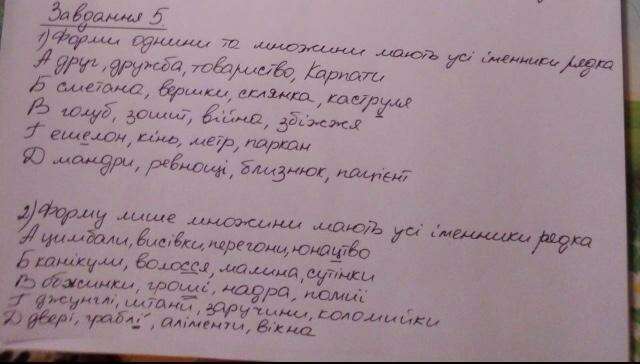 Завдання 5
1) Форми однини та множини мають усі іменники рядка
А друг, дружба, товариство, Карпати
Б сметана, вершки, склянка, каструля
В голуб, зошит, війна, збіжжя
Г ешелон, кінь, метр, паркан
Д мандри, ревнощі, близнюк, пацієнт
2) Форму лише множини мають усі іменники рядка
А цимбали, висівки, перегони, юнацтво
Б канікули, волосся, малина, сутінки
В обжинки, гроші, надра, помиї
Г джунглі, штани, заручини, коломийки
Д двері, граблі, аліменти, вікна